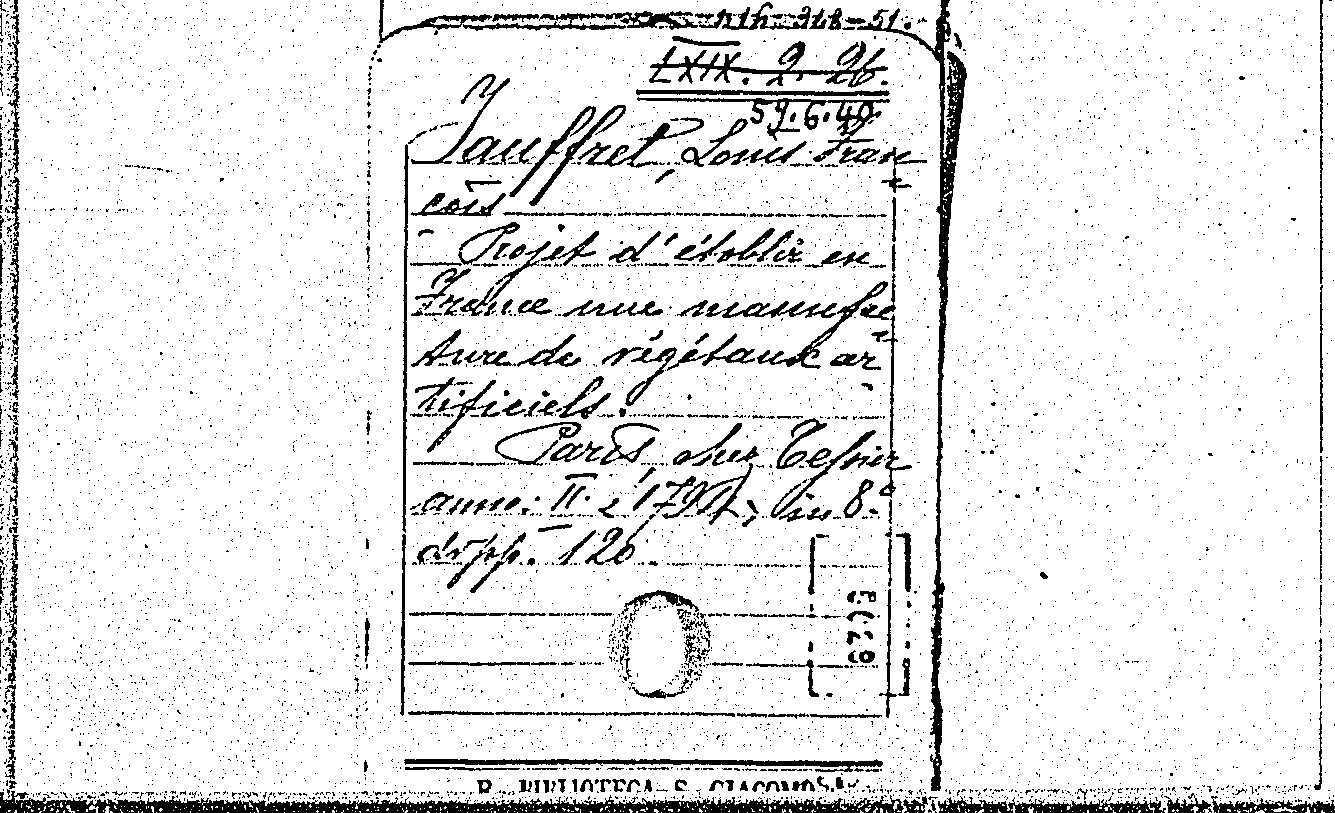 LXIX. 2. 26.
59.6.40
Jauffret, Louis Fran
çois
Projet d'établir en
France une manufac
ture de végétaux ar
tificiels.
Paris, chez
anno: II. e 1791, in 8.°
di pp. 120.
R. BIBLIOTECA S. GIACOMO